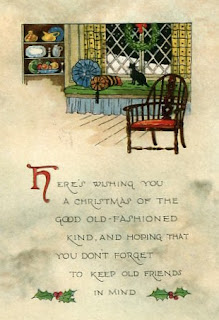 HERE'S WISHING YOU
A CHRISTMAS OF THE
GOOD OLD-FASHIONED
KIND, AND HOPING THAT
YOU DONT FORGET
TO KEEP OLD FRIENDS
IN MIND